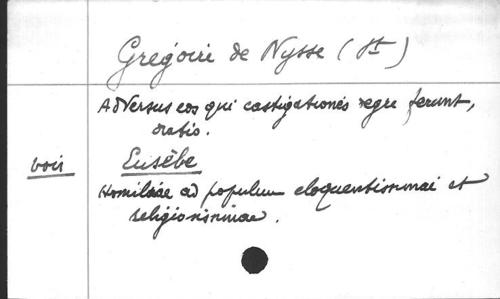 Grégoire de Nysse (St)
Adversus eos qui castigationes aegre ferunt,
oratio.
voir Eusèbe
Homiliae ad populum eloquentissimae et
religiosissimae.